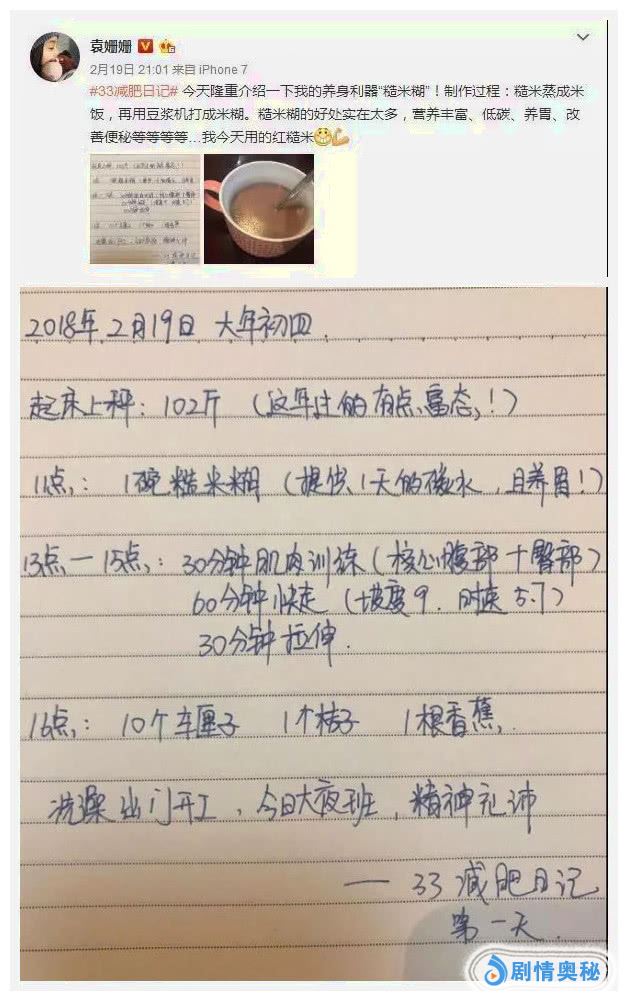 袁姗姗
2月19日 21:01 来自 iPhone 7
#33减肥日记# 今天隆重介绍一下我的养身利器“糙米糊”！制作过程：糙米蒸成米
饭，再用豆浆机打成米糊。糙米糊的好处实在太多，营养丰富、低碳、养胃、改
善便秘等等等等...我今天用的红糙米
2018年2月19日 大年初四.
起床上秤：102斤 (这年过的有点富态！)
11点： 1碗糙米糊 (提供1天的碳水，且养胃！)
13点－15点：30分钟肌肉训练(核心腹部+臀部)
60分钟快走 (坡度9. 时速5.7)
30分钟拉伸.
16点： 10个车厘子 1个桔子 1根香蕉.
洗澡出门开工，今日大夜班，精神充沛
— 33减肥日记
第一天.
剧情奥秘